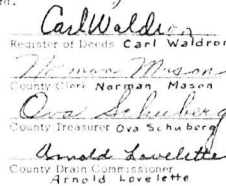 Carl Waldron
Register of Deeds Carl Waldron
Norman Mason
County Clerk Norman Mason
Ova Schuberg
County Treasurer Ova Schuberg
Arnold Lovelette
County Drain Commissioner
Arnold Lovelette